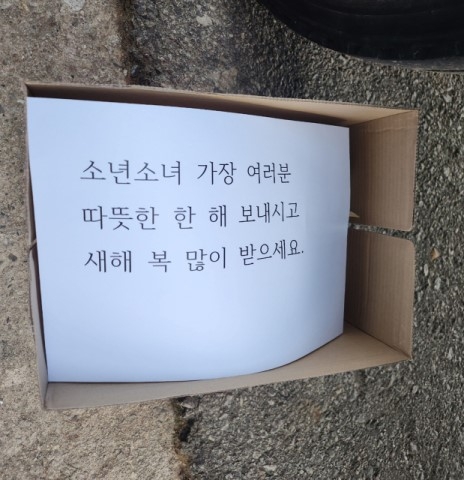 소년소녀 가장 여러분
따뜻한 한 해 보내시고
새해 복 많이 받으세요.